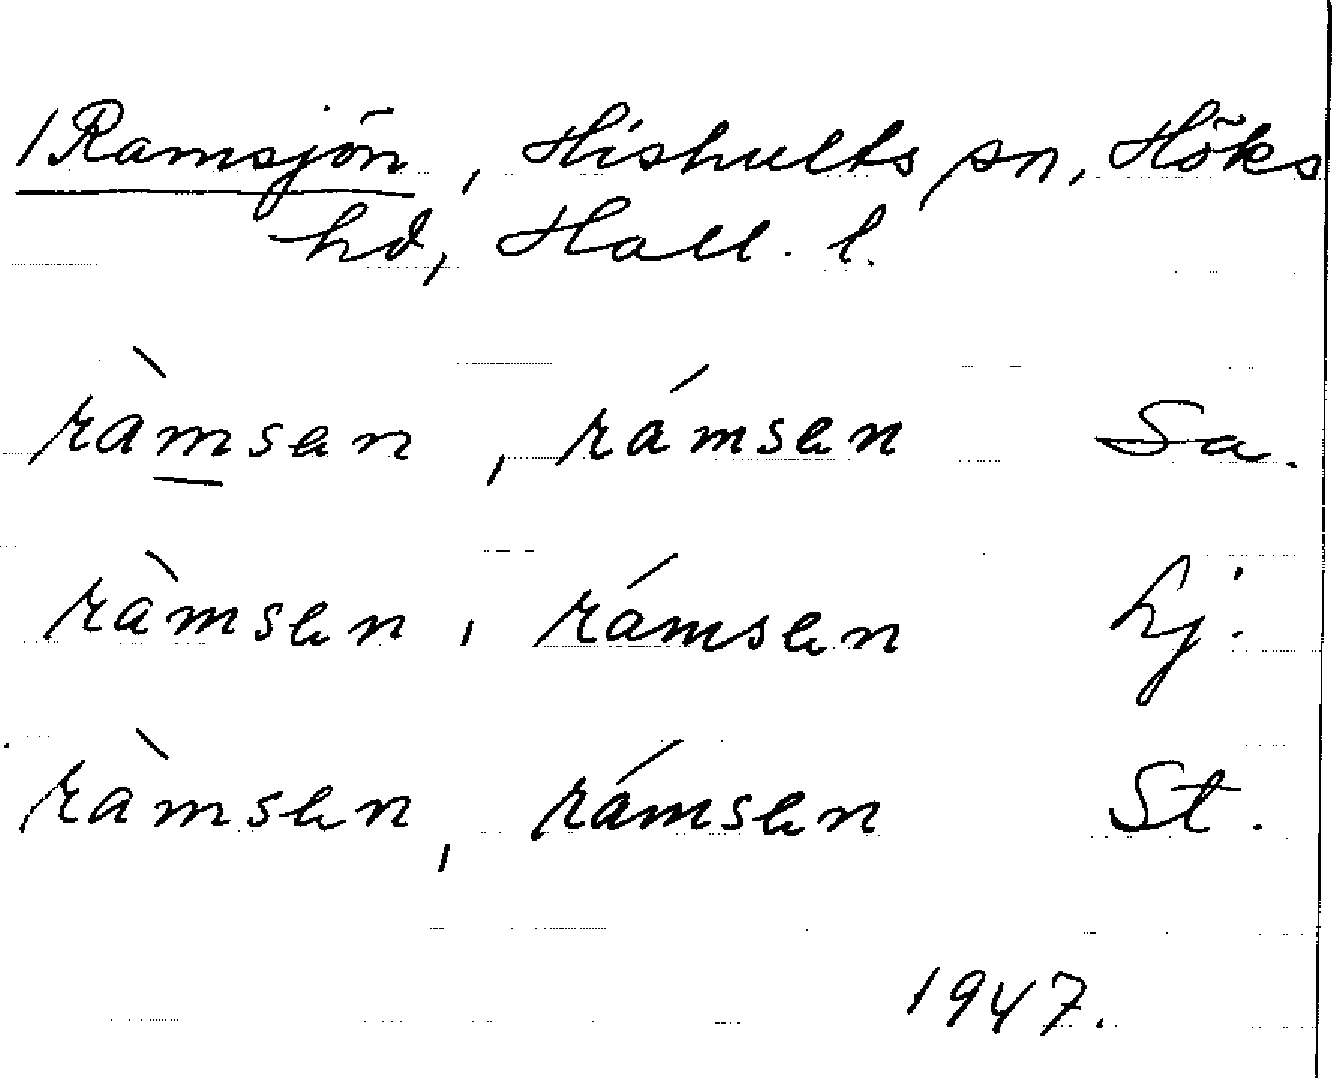 /Ramsjön, Hishults sn, Höks
hd, Hall. l.
ràmsen, rámsen Sa.
ràmsen, rámsen Lj.
ràmsen, rámsen St.
1947.